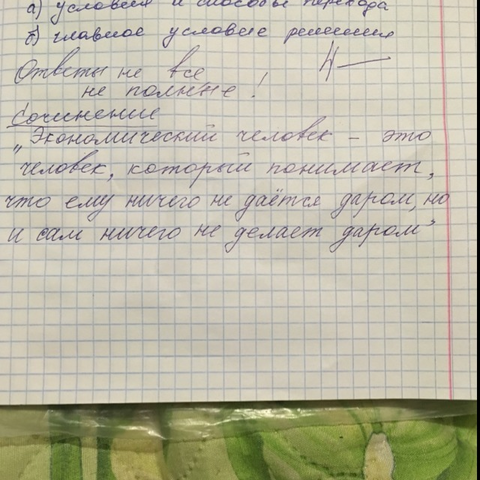 а) условия и способы перехода
б) главное условие решения
Ответы не все, 4—
не полные!
Сочинение
"Экономический человек – это
человек, который понимает,
что ему ничего не даётся даром, но
и сам ничего не делает даром"